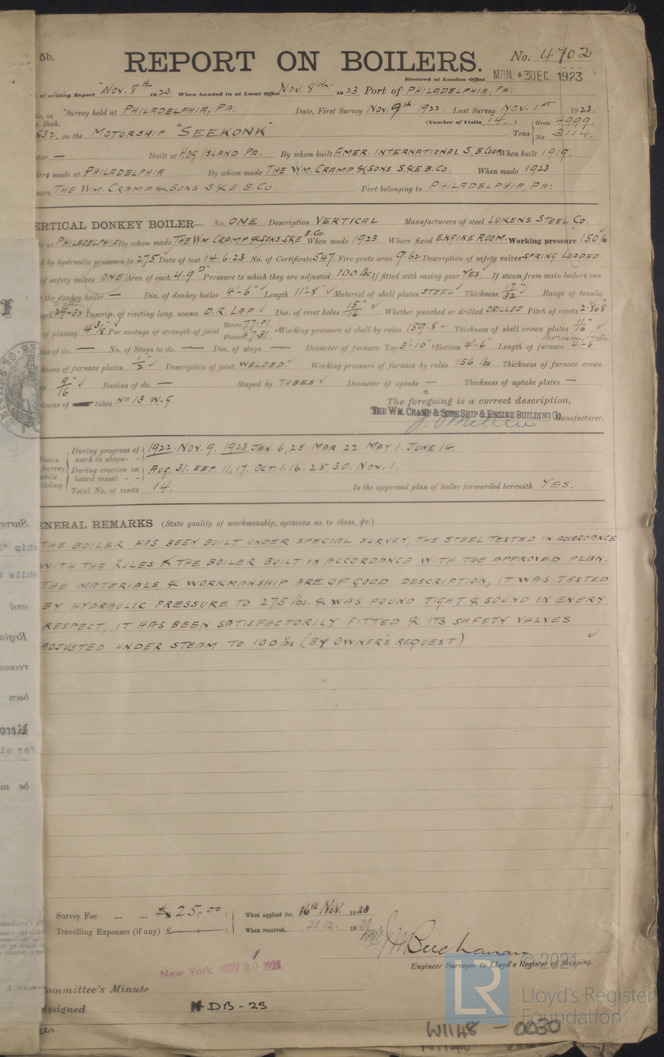 5b.
REPORT ON BOILERS.
No. 4702
Received at London Office MON. 3 DEC. 1923
of writing Report Nov. 8th 1923 When handed in at Local Office Nov. 8th 1923 Port of PHILADELPHIA, PA:
Survey held at PHILADELPHIA, PA: Date, First Survey Nov. 9th 1922 Last Survey Nov. 1st 1923.
(Number of Visits 14.)
on the MOTORSHIP "SEEKONK" Tons Gross 4999. Net 3114.
Built at HOG ISLAND PA. By whom built AMER. INTERNATIONAL S.B. CORP. When built 1919.
made at PHILADELPHIA By whom made THE WM. CRAMP & SONS S & E B. Co. When made 1923
THE WM. CRAMP & SONS S & E. B. Co. Port belonging to PHILADELPHIA, PA:
VERTICAL DONKEY BOILER— No. ONE Description VERTICAL Manufacturers of steel LUKENS STEEL Co.
at PHILADELPHIA By whom made THE WM. CRAMP & SONS S & E B. Co. When made 1923. Where fixed ENGINE ROOM. Working pressure 150 lbs
by hydraulic pressure to 275 Date of test 14.6.23 No. of Certificate 547. Fire grate area 9.62 Description of safety valves SPRING LOADED
of safety valves ONE Area of each 4.9 □" Pressure to which they are adjusted 100 lbs If fitted with easing gear YES If steam from main boilers can
the donkey boiler — Dia. of donkey boiler 4'-6" Length 11'-8" Material of shell plates STEEL Thickness 17/32" Range of tensile
Descrip. of riveting long. seams D.R. LAP Dia. of rivet holes 15/16" Whether punched or drilled DRILLED Pitch of rivets 2.568
of plating 4 3/8" Per centage of strength of joint Rivets 77.01 Plates Working pressure of shell by rules 159.8 Thickness of shell crown plates 11/16"
of do. — No. of Stays to do. — Dia. of stays — Diameter of furnace Top 3'-10" Bottom 4'-6" Length of furnace 4'-6"
thickness of furnace plates 1/2" Description of joint WELDED Working pressure of furnace by rules 156 lbs. Thickness of furnace crown
9/16" Radius of do. — Stayed by TUBES Diameter of uptake — Thickness of uptake plates —
tubes No 13 W.G.
The foregoing is a correct description,
THE WM. CRAMP & SONS SHIP & ENGINE BUILDING Co. Manufacturer.
During progress of work in shops - - 1922. NOV. 9. 1923 JAN. 6, 25. MAR 22. MAY 1. JUNE 14.
During erection on board vessel - - AUG. 31. SEP. 11, 17. OCT. 1. 16. 25 30. NOV. 1.
Total No. of visits 14. Is the approved plan of boiler forwarded herewith YES.
GENERAL REMARKS (State quality of workmanship, opinions as to class, &c.)
THE BOILER HAS BEEN BUILT UNDER SPECIAL SURVEY, THE STEEL TESTED IN ACCORDANCE
WITH THE RULES & THE BOILER BUILT IN ACCORDANCE WITH THE APPROVED PLAN.
THE MATERIALS & WORKMANSHIP ARE OF GOOD DESCRIPTION, IT WAS TESTED
BY HYDRAULIC PRESSURE TO 275 lbs. & WAS FOUND TIGHT & SOUND IN EVERY
RESPECT, IT HAS BEEN SATISFACTORILY FITTED & ITS SAFETY VALVES
ADJUSTED UNDER STEAM TO 100 lbs (BY OWNER'S REQUEST)
Survey Fee ... ... $ 25.00 When applied for. 16th Nov. 1923
Travelling Expenses (if any) £ When received. 21.12. 19
Buchanan
Engineer Surveyor to Lloyd's Register of Shipping.
New York NOV 20 1923
Committee's Minute
Assigned DB-25
© 2021
LR Lloyd's Register
Foundation
W1148 - 0030